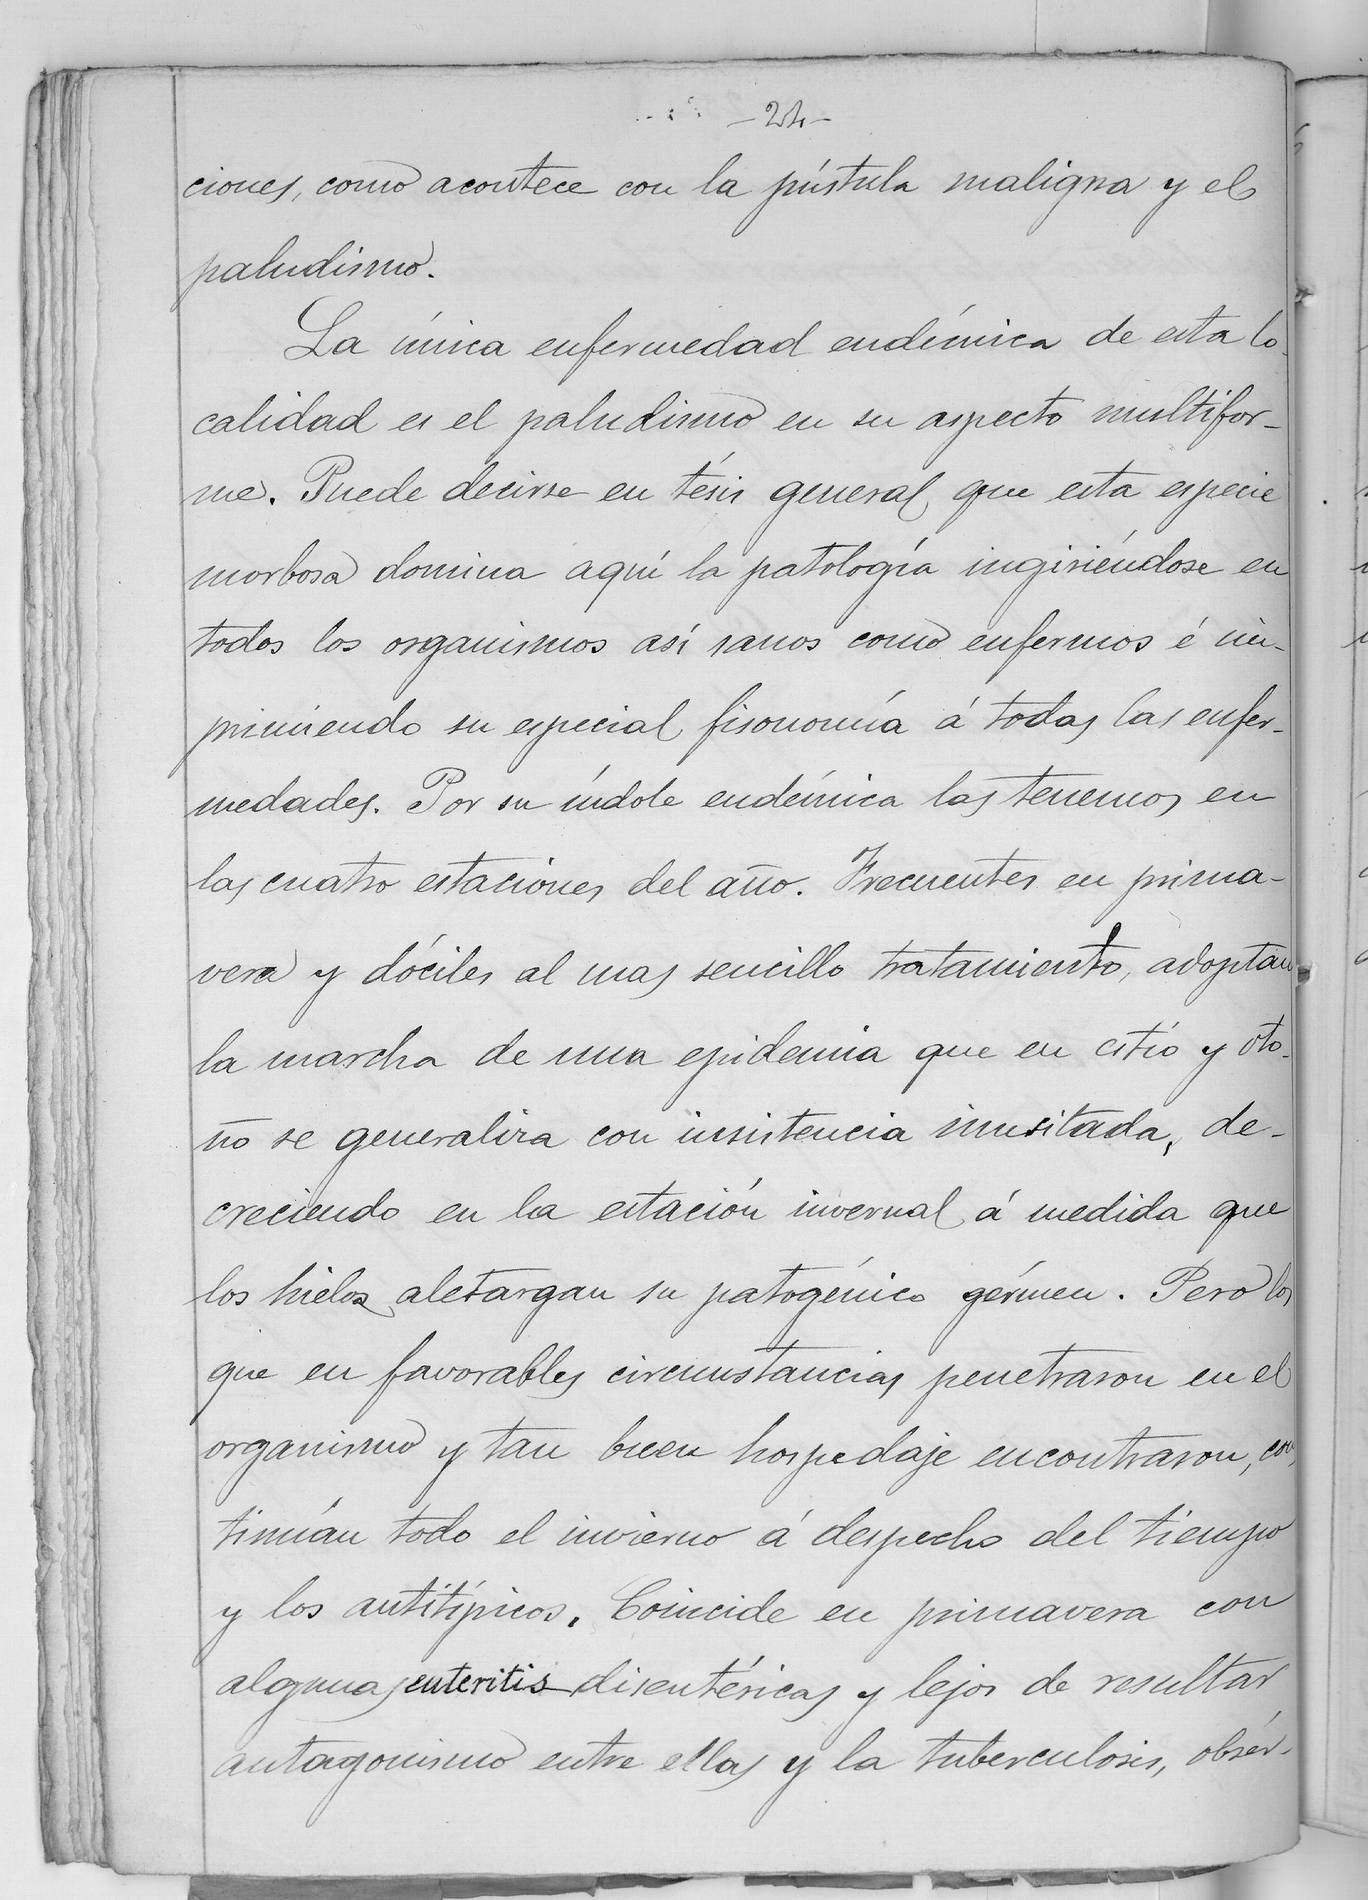 -24-
ciones, como acontece con la pústula maligna y el
paludismo.
La única enfermedad endémica de esta lo-
calidad es el paludismo en su aspecto multifor-
me. Puede decirse en tésis general que esta especie
morbosa domina aquí la patología ingiriéndose en
todos los organismos así sanos como enfermos é im-
primiendo su especial fisonomía á todas las enfer-
medades. Por su índole endémica las tenemos en
las cuatro estaciones del año. Frecuentes en prima-
vera y dóciles al mas sencillo tratamiento, adoptan
la marcha de una epidemia que en estío y oto-
ño se generaliza con insistencia inusitada, de-
creciendo en la estación invernal á medida que
los hielos aletargan su patogénico gérmen. Pero los
que en favorables circunstancias penetraron en el
organismo y tan buen hospedaje encontraron, con-
tinúan todo el invierno á despecho del tiempo
y los antitípicos. Coincide en primavera con
algunas enteritis disentéricas y lejos de resultar
antagonismo entre ellas y la tuberculosis, obsér-